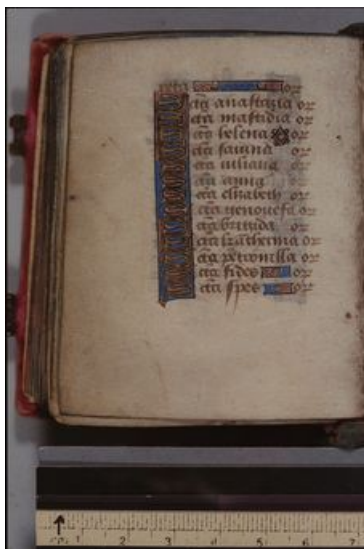 or
cta anastazia or
cta mastidia or
cta helena or
cta sauina or
cta iuliana or
cta anna or
cta elizabeth or
cta genouefa or
cta or
cta katherina or
cta petronilla or
cta fides or
cta spes or
1 2 3 4 5 6 7